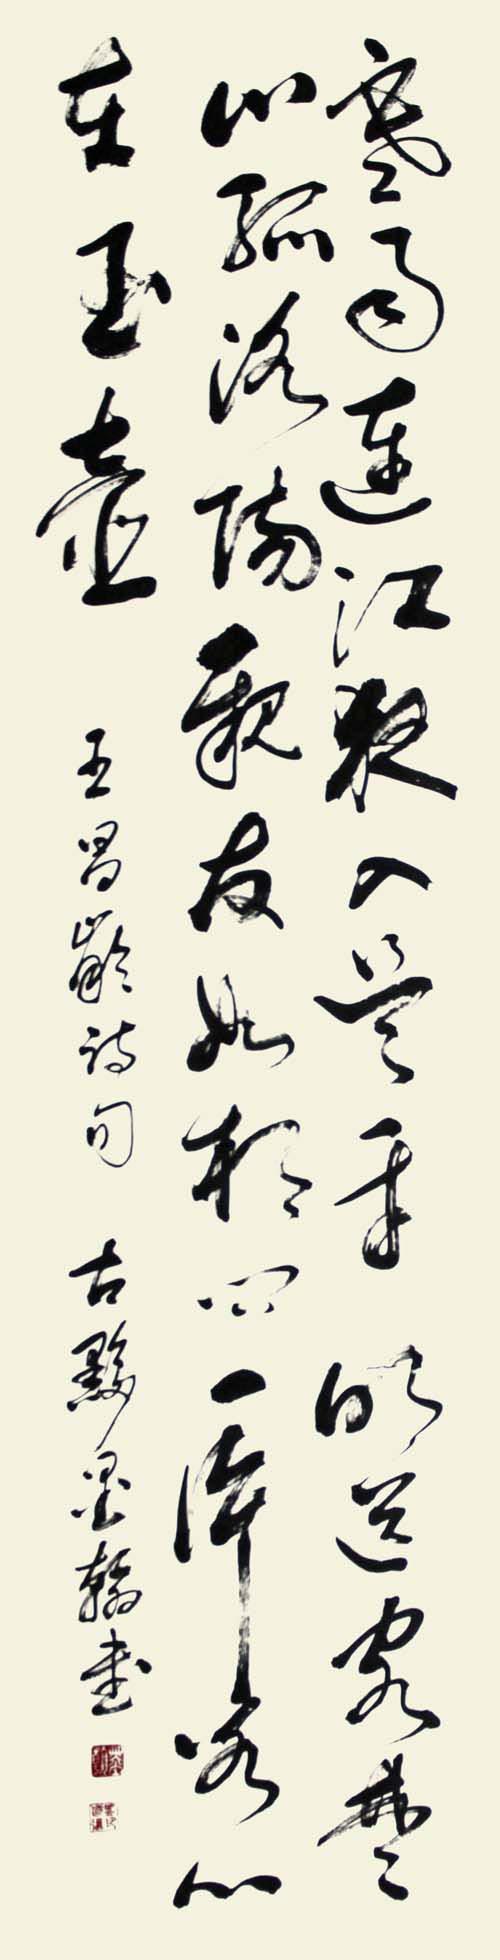 寒雨連江夜入吳平明送客楚
山孤洛陽親友如相問一片冰心
在玉壺 王昌齡詩句 古黟墨翰書